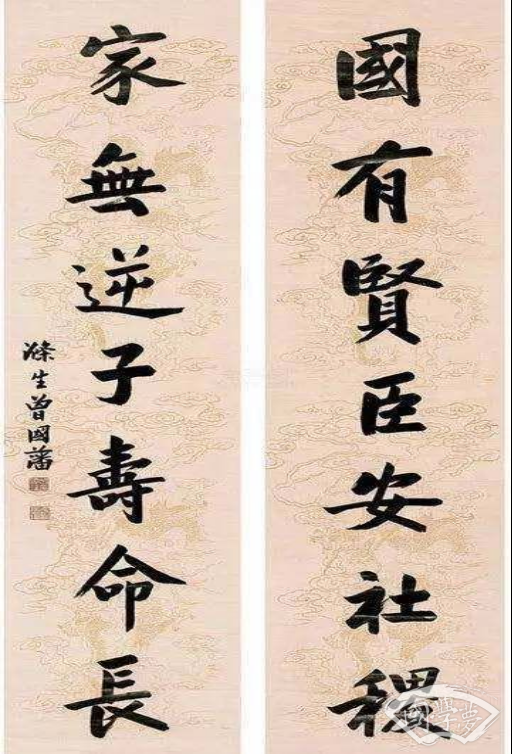 國有賢臣安社稷
家無逆子壽命長
滌生曾國藩
國學夢